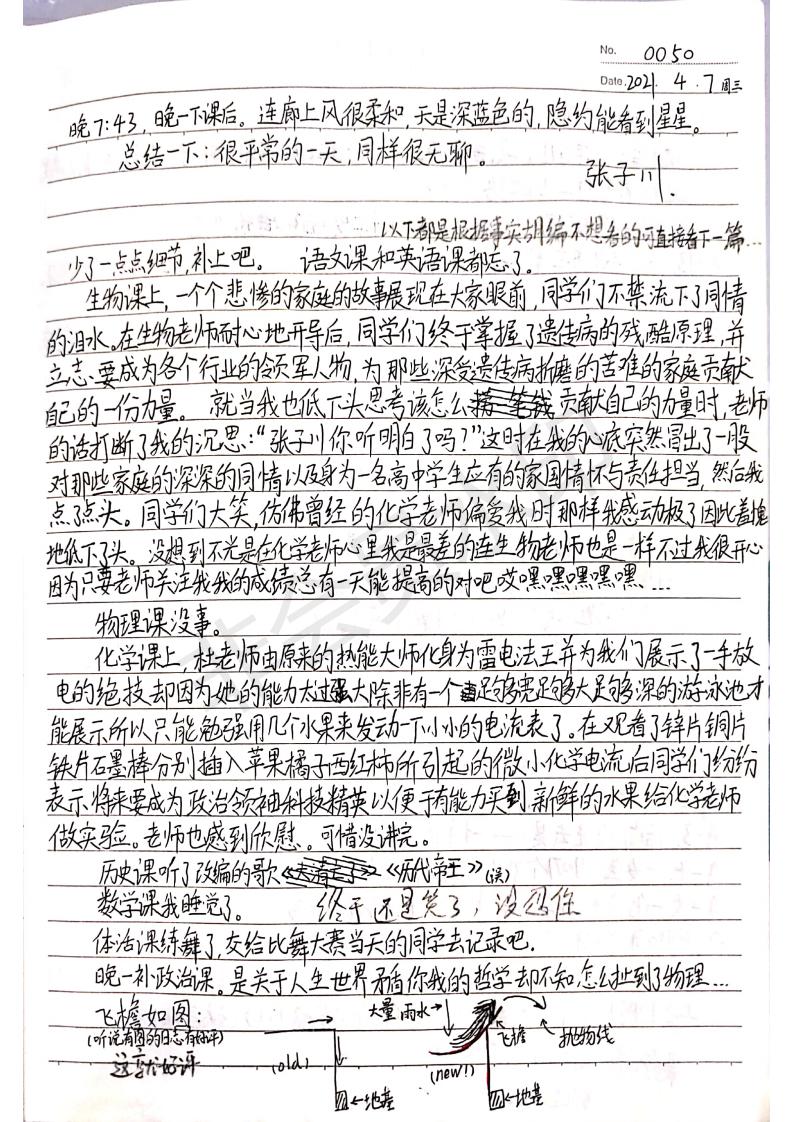 No. 0050
Date. 2021. 4. 7 周三
晚7:43,晚一下课后。连廊上风很柔和,天是深蓝色的,隐约能看到星星。
总结一下:很平常的一天,同样很无聊。
张子川.
以下都是根据事实胡编不想看的可直接看下一篇...
少了一点点细节,补上吧。 语文课和英语课都忘了。
生物课上,一个个悲惨的家庭的故事展现在大家眼前,同学们不禁流下了同情
的泪水。在生物老师耐心地开导后,同学们终于掌握了遗传病的残酷原理,并
立志要成为各个行业的领军人物,为那些深受遗传病折磨的苦难的家庭贡献
自己的一份力量。 就当我也低下头思考该怎么贡献自己的力量时,老师
的话打断了我的沉思:“张子川你听明白了吗?”这时在我的心底突然冒出了一股
对那些家庭的深深的同情以及身为一名高中学生应有的家国情怀与责任担当,然后我
点了点头。同学们大笑,仿佛曾经的化学老师偏爱我时那样我感动极了因此羞愧
地低下了头。没想到不光是在化学老师心里我是最差的连生物老师也是一样不过我很开心
因为只要老师关注我我的成绩总有一天能提高的对吧哎嘿嘿嘿嘿嘿...
物理课没事。
化学课上,杜老师由原来的热能大师化身为雷电法王并为我们展示了一手放
电的绝技却因为她的能力太过强大除非有一个足够宽足够大足够深的游泳池才
能展示所以只能勉强用几个水果来发动一下小小的电流表了。在观看了锌片铜片
铁片石墨棒分别插入苹果橘子西红柿所引起的微小化学电流后同学们纷纷
表示将来要成为政治领袖科技精英以便于有能力买到新鲜的水果给化学老师
做实验。老师也感到欣慰。可惜没讲完。
历史课听了改编的歌《历代帝王》(误)
数学课我睡觉了。 终于还是笑了,没忍住
体活课练舞了,交给比舞大赛当天的同学去记录吧.
晚一补政治课。是关于人生世界矛盾你我的哲学却不知怎么扯到了物理...
飞檐如图:
(听说有图的日志有好评)
这就好评
(old)
地基
大量雨水
(new!)
飞檐
抛物线
地基